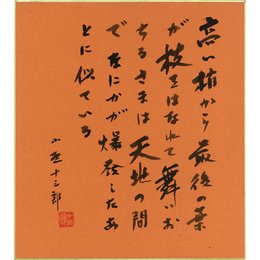 高い梢から最後の葉
が枝をはなれて舞いお
ちるさまは天地の間
でなにかが爆発したあ
とに似ている
小野十三郎